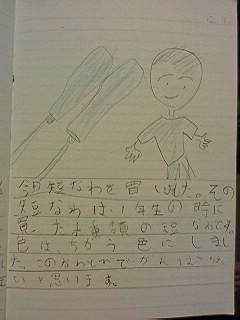 12.1
今日短なわを買いました。その
短なわは、1年生の時に
買ったた 類の短なわです。
色は、ちがう色にしまし
た。このなわとびでがんばりた
いと思います。